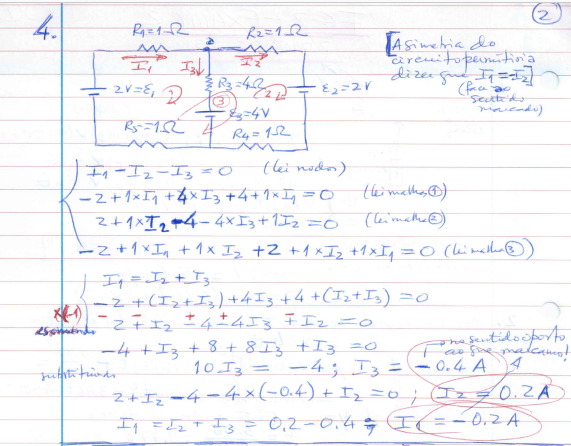 2
4.
R1=1Ω R2=1Ω
I1 I3 I2
2V=ε1 1 R3=4Ω 2 ε2=2V
3
ε3=4V
R5=1Ω R4=1Ω
[A simetria do
circuito permitiria
dizer que I1=I2]
(para o
sentido
marcado)
I1-I2-I3=0 (lei nodos)
-2+1×I1+4×I3+4+1×I1=0 (lei malha 1)
2+1×I2-4-4×I3+1I2=0 (lei malha 2)
-2+1×I1+1×I2+2+1×I2+1×I1=0 (lei malha 3)
I1=I2+I3
-2+(I2+I3)+4I3+4+(I2+I3)=0
×(-1) - - + + -
2+I2-4-4I3+I2=0
e somando
-4+I3+8+8I3+I3=0
no sentido oposto
ao que marcamos!
10I3=-4; I3=-0.4A
substituindo
2+I2-4-4×(-0.4)+I2=0; I2=0.2A
I1=I2+I3=0.2-0.4; I1=-0.2A